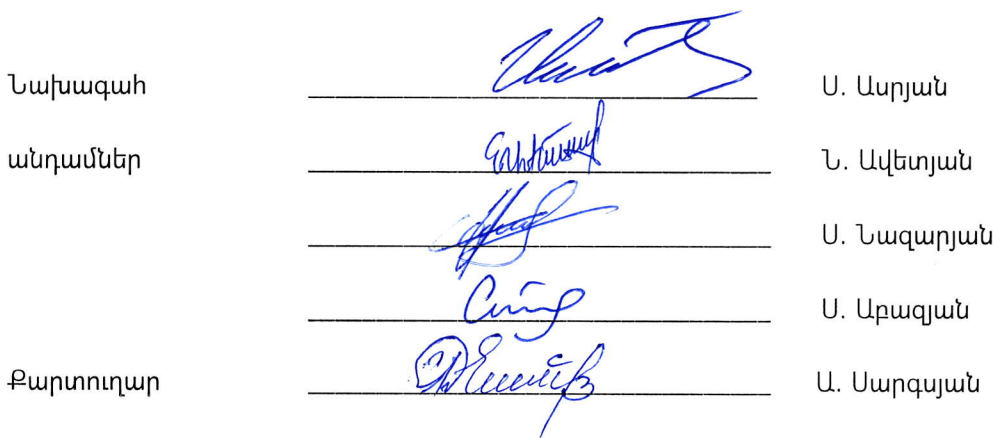 Նախագահ Ս. Ասրյան
անդամներ Ն. Ավետյան
Ս. Նազարյան
Ս. Աբազյան
Քարտուղար Ա. Սարգսյան